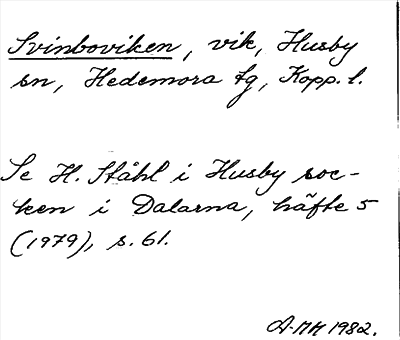 Svinboviken, vik, Husby
sn, Hedemora tg, Kopp. l.
Se H. Ståhl i Husby soc-
ken i Dalarna, häfte 5
(1979), s. 61.
A-MM 1982.